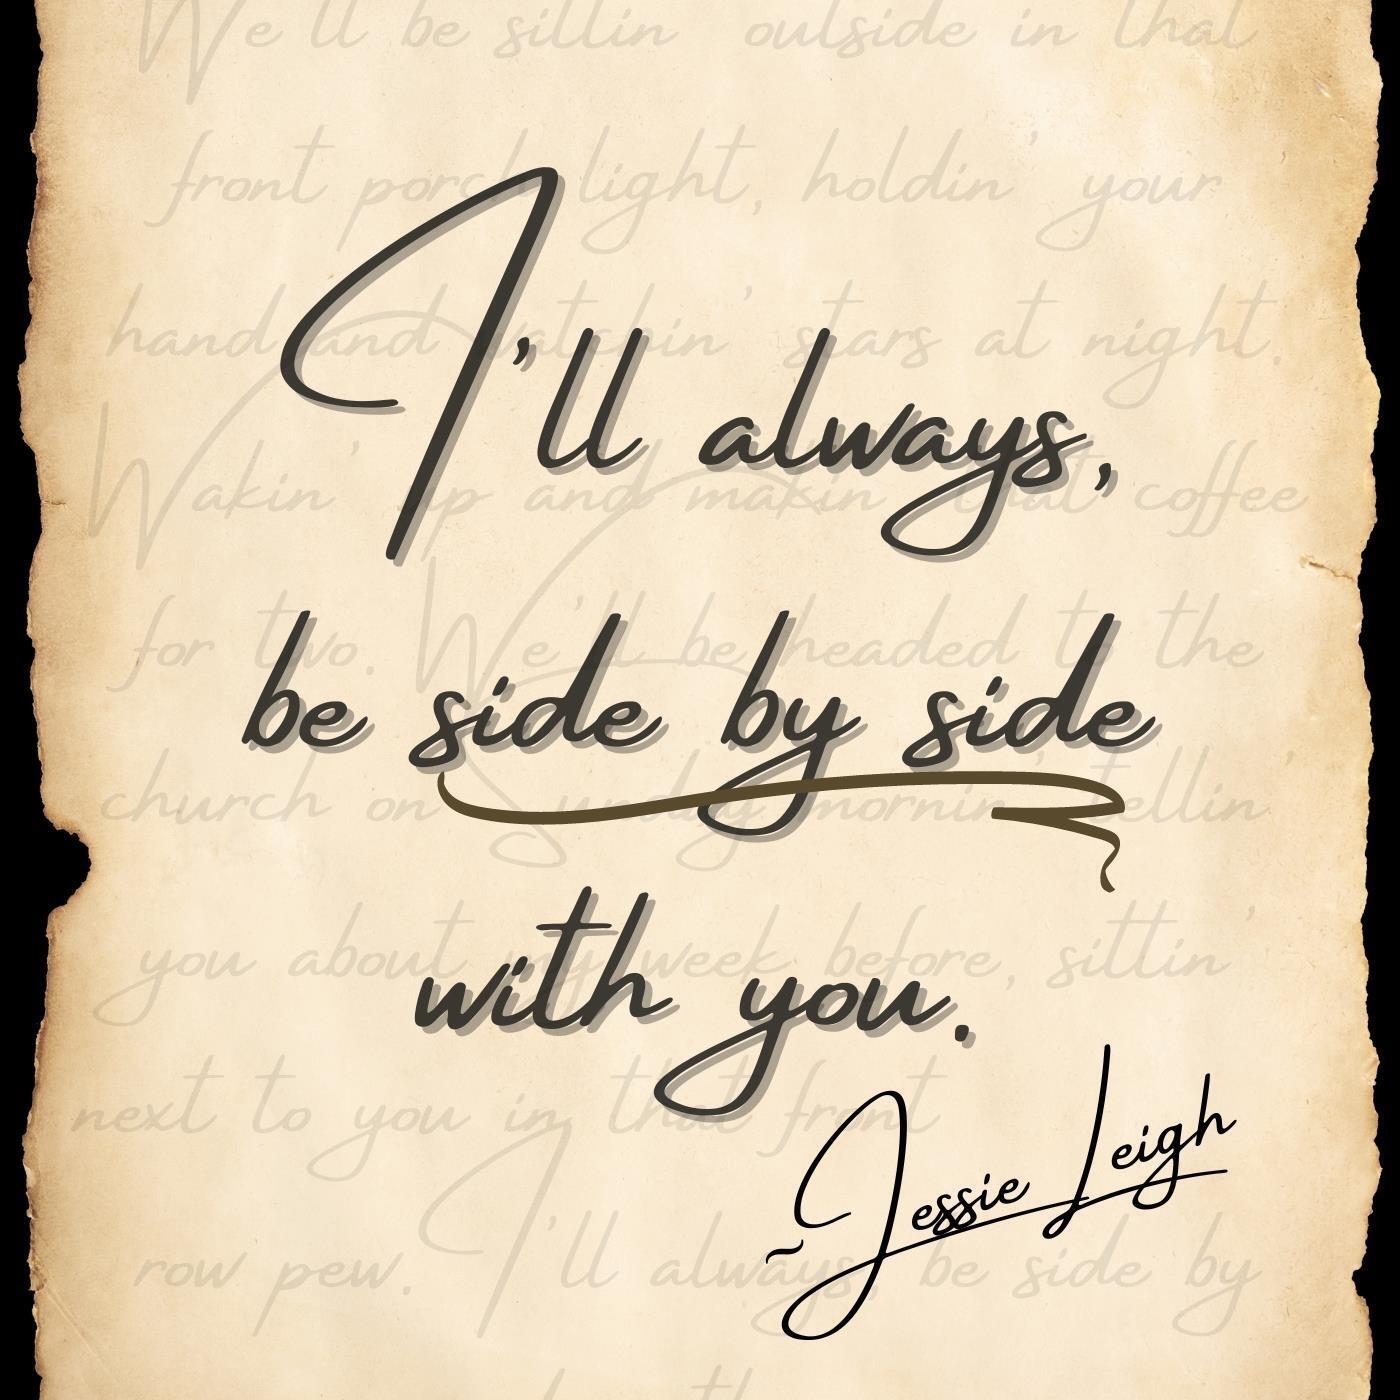 We'll be sillin' outside in that
front porch light, holdin' your
hand and watchin' stars at night.
I'll always,
Wakin' up and makin' that coffee
for two. We'll be headed to the
be side by side
church on Sunday mornin' Tellin'
you about my week before, sittin'
with you.
next to you in that front
~Jessie Leigh
row pew. I'll always, be side by